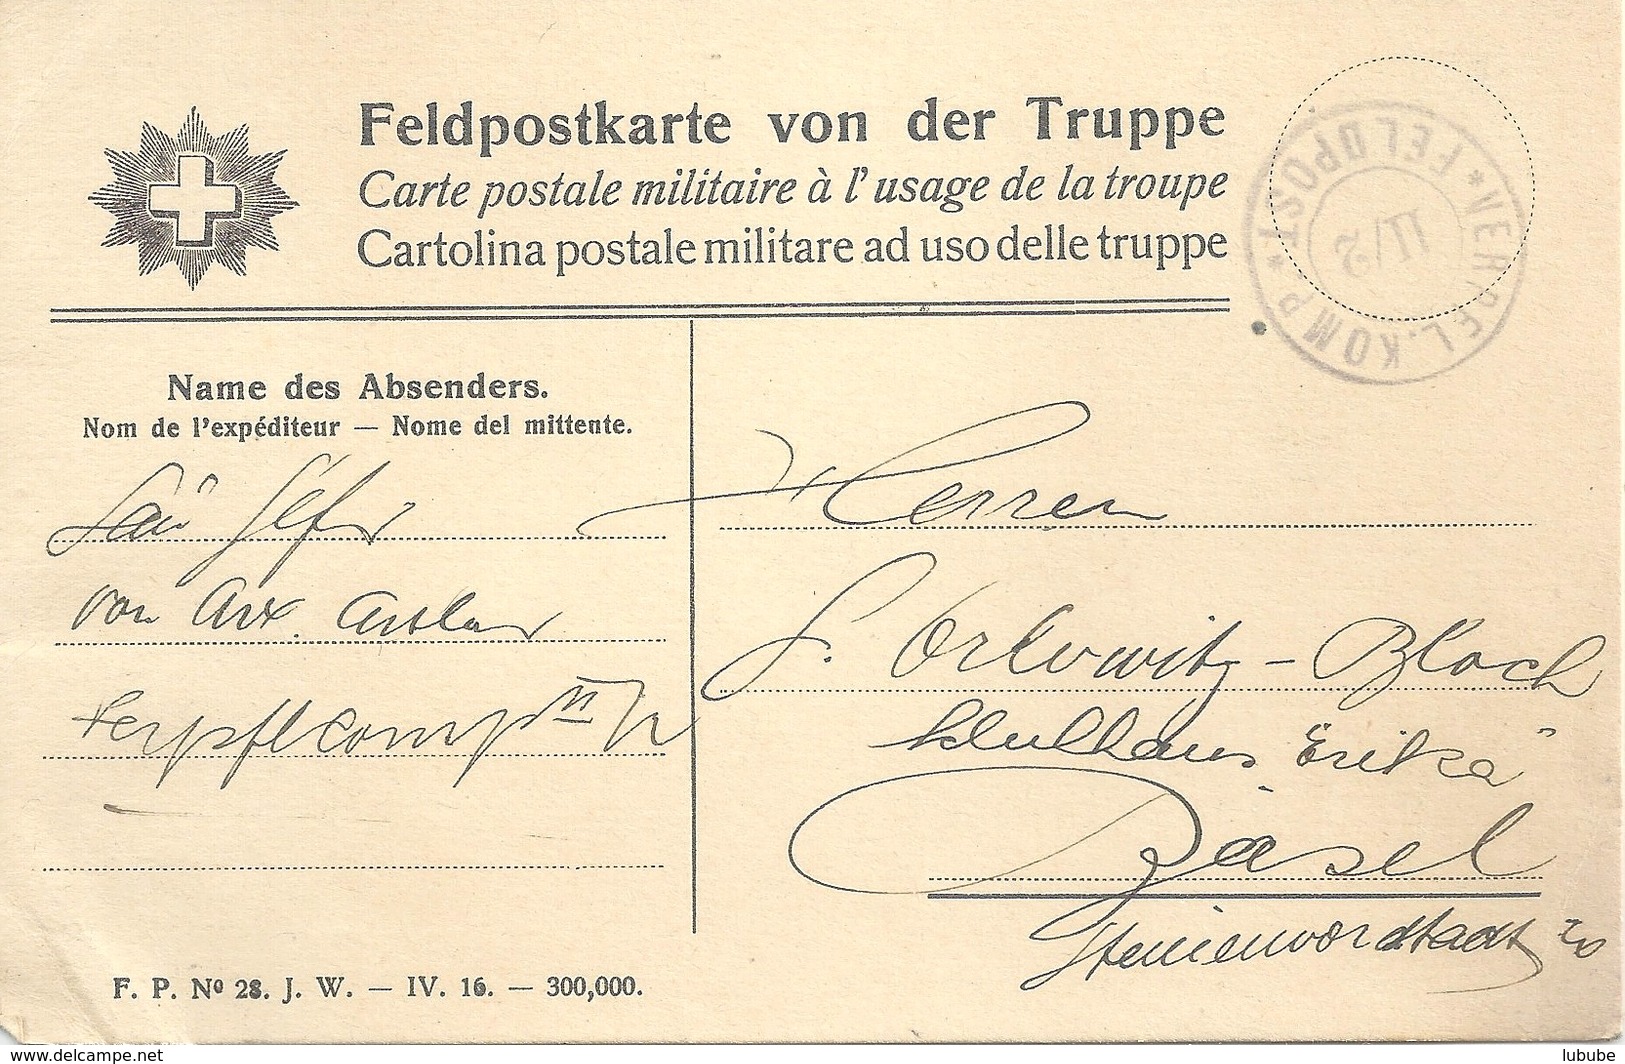 Feldpostkarte von der Truppe
Carte postale militaire à l'usage de la troupe
Cartolina postale militare ad uso delle truppe
* VERPFL. KOMP. * FELDPOST
II/2
Name des Absenders.
Nom de l'expéditeur — Nome del mittente.
San Gefr
von Arx
Verpflcomp II/2
Herren
S. Orlowitz-Bloch
"Erika"
Basel
Steinenvorstadt 20
F. P. Nº 28. J. W. — IV. 16. — 300,000.
www.delcampe.net
lubube